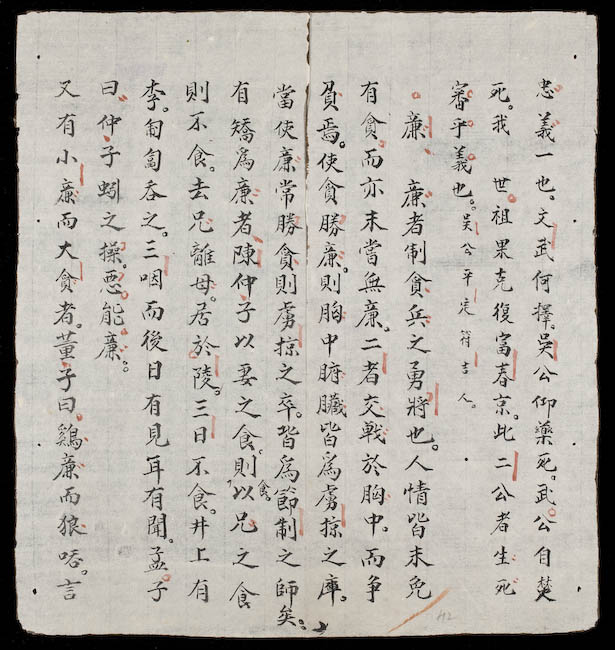 忠義一也。文武何擇。吳公仰藥死。武公自焚
死。我 世祖果克復富春京。此二公者生死
審乎義也。吳公平定符吉人。
廉 廉者制貪兵之勇將也。人情皆未免
有貪。而亦未當無廉。二者交戰於胸中。而爭
貟焉。使貪勝廉。則胸中腑臟皆爲虜掠之庫。
當使廉常勝貪則虜掠之卒。皆爲節制之師矣。
有矯爲廉者陳仲子以妻之食。則食。以兄之食
則不食。去兄離母。居於陵。三日不食。井上有
李。匍匐吞之。三咽而後目有見耳有聞。孟子
曰仲子蚓之操。惡能廉。
又有小廉而大貪者。董子曰。鷄廉而狼吞。言